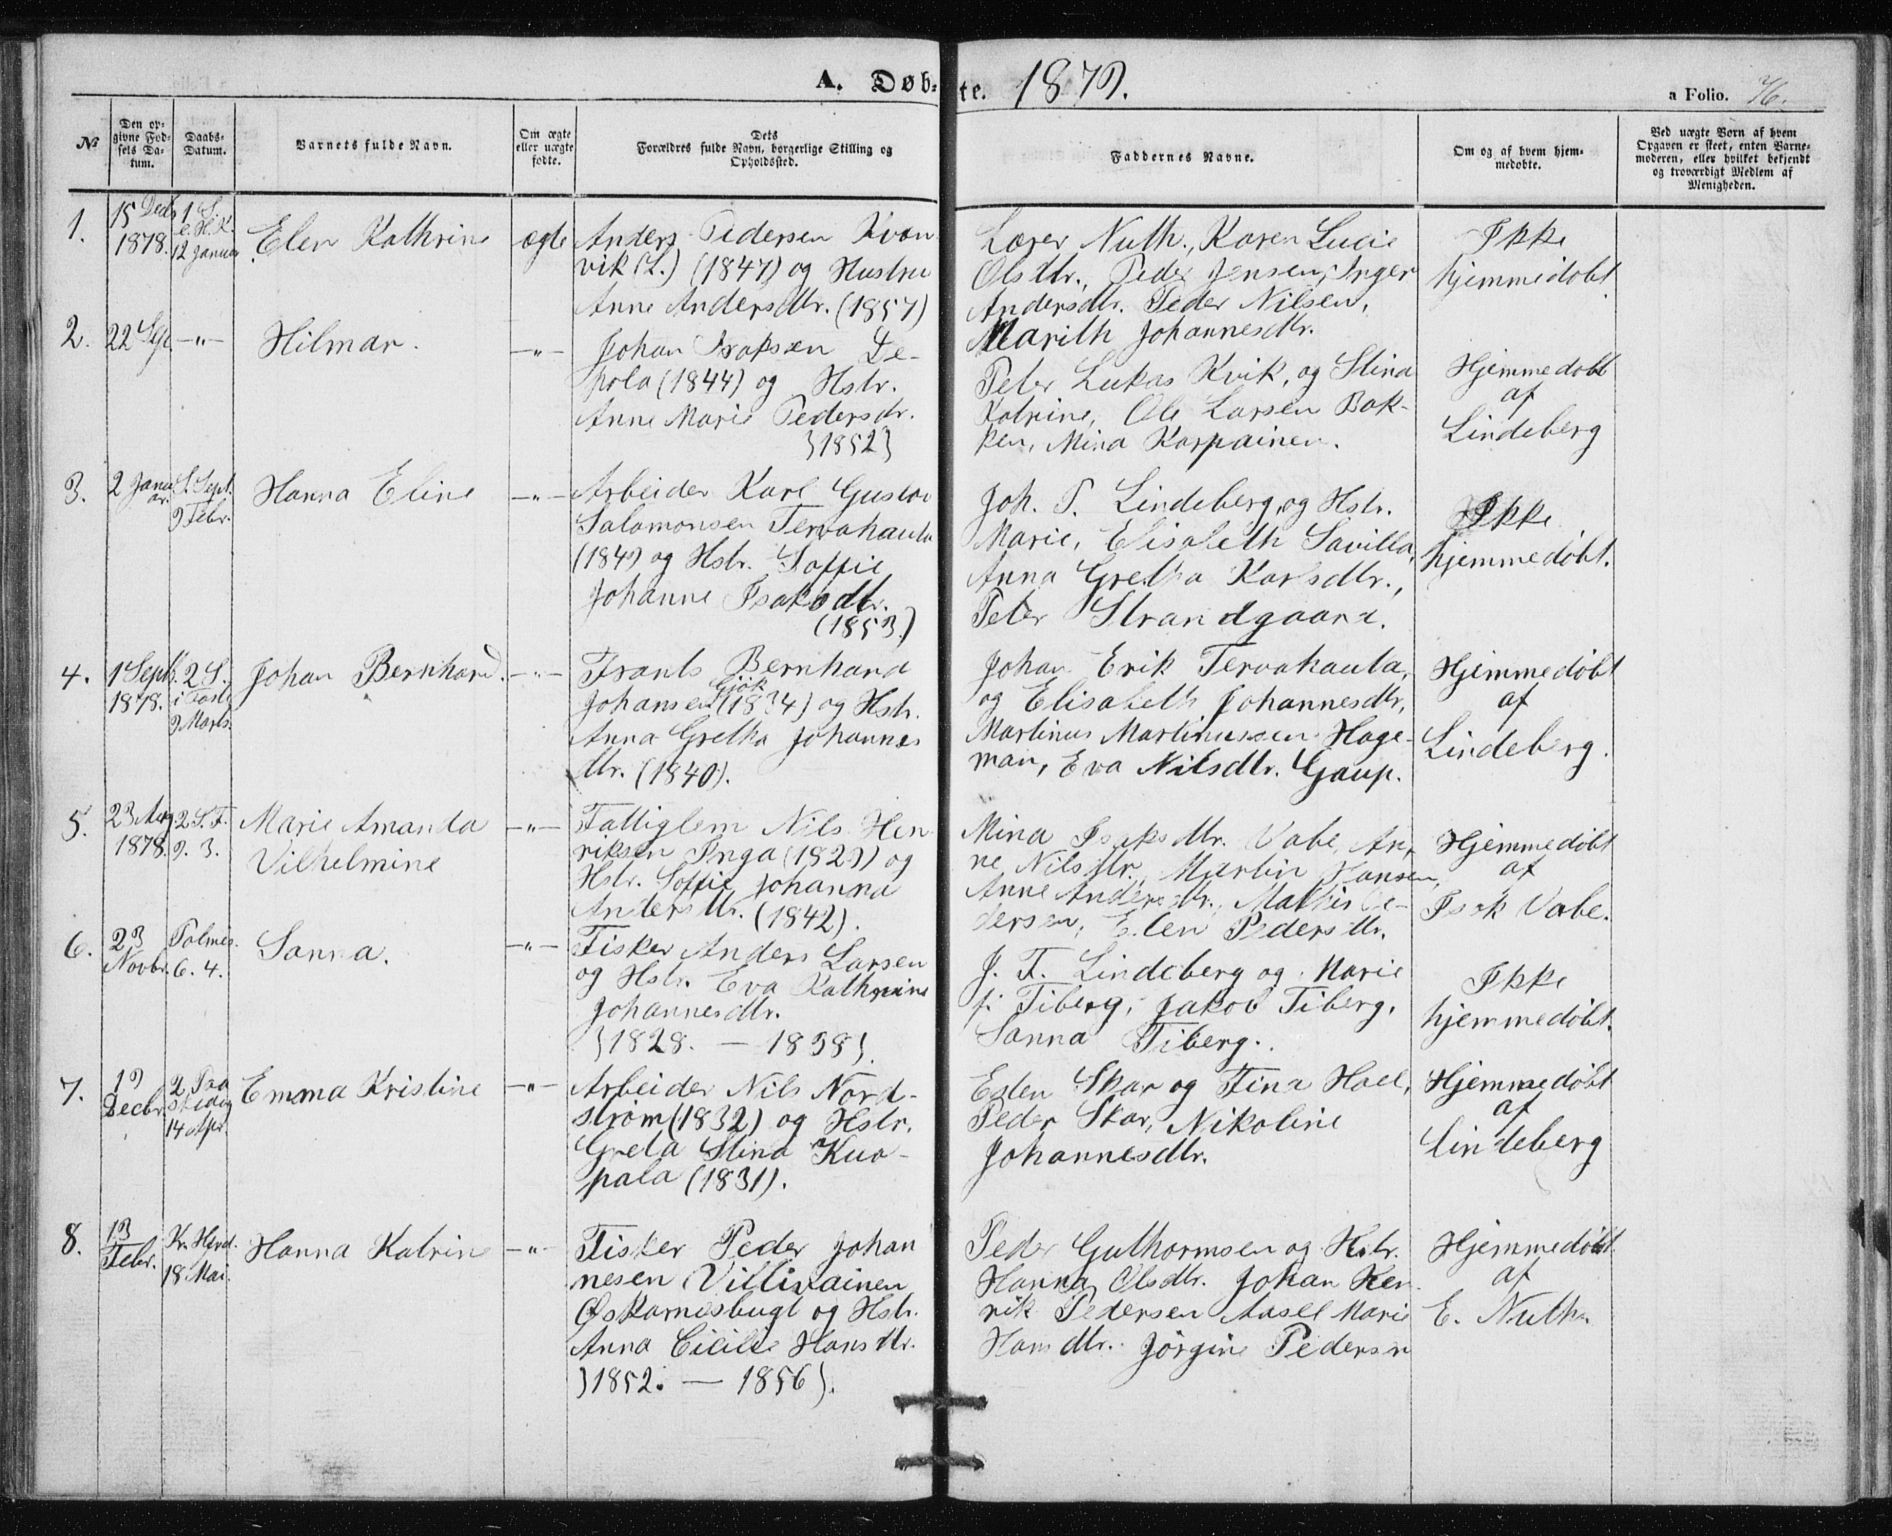 A. Døb-
te. 1879.
a Folio. 76.
№
Den op-
givne Fød-
sels Da-
tum.
Daabs-
Datum.
Barnets fulde Navn.
Om ægte
eller uægte
fødte.
Dets
Forældres fulde Navn, borgerlige Stilling og
Opholdssted.
Faddernes Navne.
Om og af hvem hjem-
medøbte.
Ved uægte Børn af hvem
Opgaven er skeet, enten Barne-
moderen, eller hvilket bekjendt
og troværdigt Medlem af
Menigheden.
1.
15 Decb
1878.
1 S.
e. H. K.
12 Januar
Elen Kathrine
ægte
Anders Pedersen Kvæn-
vik (L.) (1847) og Hustru
Anne Andersdtr. (1857)
Lærer Nuth., Karen Lucie
Olsdtr., Peder Jensen, Inger
Andersdtr. Peder Nilsen,
Marith Johannesdtr.
Ikke
hjemmedøbt
2.
22 Sep.
—"—
Hilmar.
—"—
Johan Isaksen Le-
pola (1844) og Hstr.
Anne Marie Pedersdr.
}1852}
Peter Lukas Kvik, og Stina
Katrine, Ole Larsen Bak-
ken, Mina Karpainen.
Hjemmedøbt
af
Lindeberg
3.
2 Janu
ar.
S. Sept.
9 Febr.
Hanna Eline
—"—
Arbeider Karl Gustav
Salamonsen Tervahauta
(1849 og Hstr. Soffie
Johanne Isaksdtr.
(1853.)
Joh. T. Lindeberg, og Hstr.
Marie, Elisabeth Savilla,
Anna Gretha Karlsdtr.,
Peter Strandgaard.
Ikke
hjemmedøbt.
4.
1 Septb.
1878.
2 S.
i Faste
9 Marts.
Johan Bernhard.
—"—
Frants Bernhard
Gjök
Johansen (1834) og Hstr.
Anna Gretha Johannes
dtr. (1840).
Johan Erik Tervahauta,
og Elisabeth Johannesdtr,
Martinus Martinussen Hage-
man, Eva Nilsdtr. Gaup.
Hjemmedøbt
af
Lindeberg.
5.
23 Aug
1878.
2 S. F.
9. 3.
Marie Amanda
Vilhelmine
—"—
Fattiglem Nils Hen
riksen Inga (1829) og
Hstr. Soffie Johanna
Andersdtr. (1842).
Mina Isaksdtr. Vabe, An-
ne Nilsdtr., Martin Hansen,
Anne Andersdtr., Mathis Pe-
dersen, Elen Pedersdtr.
Hjemmedøbt
af
Isak Vabe.
6.
23
Novbr.
Palmes.
6. 4.
Sanna.
—"—
Fisker Anders Larsen
og Hstr. Eva Kathrine
Johannesdtr.
}1828. — 1838}.
J. T. Lindeberg og Marie
f. Tiberg, Jakob Tiberg,
Sanna Tiberg.
Ikke
hjemmedøbt.
7.
19
Decbr.
2 Paa
skedag
14 Apr.
Emma Kristine
—"—
Arbeider Nils Nord-
strøm (1832) og Hstr.
Greta Stina Kuo-
pala (1831).
Esten Skar og Fina Hall,
Peder Skar, Nikoline
Johannesdtr.
Hjemmedøbt
af
Lindeberg
8.
13
Febr.
Kr. Hird.
18 Mai.
Hanna Katrine
—"—
Fisker Peder Johan
nesen Villivainen
Oskarnesbugt og Hstr.
Anna Cicilie Hansdtr.
}1852. — 1856}.
Peder Guthormsen og Hstr.
Hanna Olsdtr. Johan Hen-
rik Pedersen Ansell Marie
Hansdtr. Jørgine Pedersn
Hjemmedøbt
af
E. Nuth.